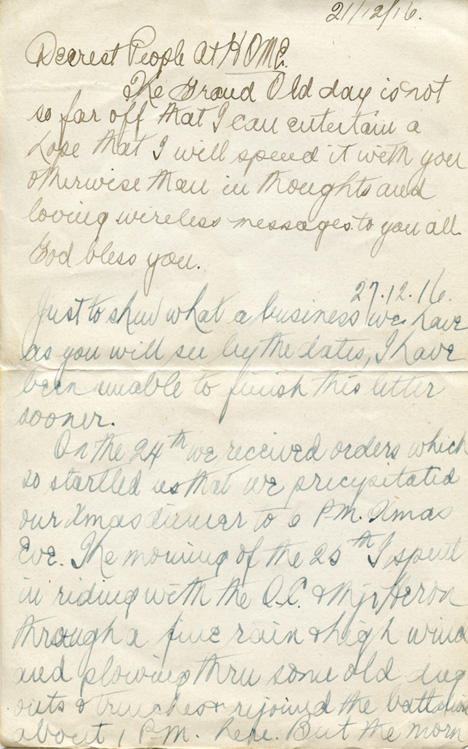 21/12/16.
Dearest People at HOME.
The Grand Old day is not
so far off that I can entertain a
hope that I will spend it with you
otherwise than in thoughts and
loving wireless messages to you all.
God bless you.
27.12.16.
Just to show what a business we have
as you will see by the dates, I have
been unable to finish this letter
sooner.
On the 24th we received orders which
so startled us that we precypitated
our Xmas dinner to 6 P.M. Xmas
Eve. The morning of the 25th I spent
in riding with the O.C. & Mjr Heron
through a fine rain & high wind
and plowing thru some old dug
outs & trenches & rejoined the battalion
about 1 P.M. here. But the morn